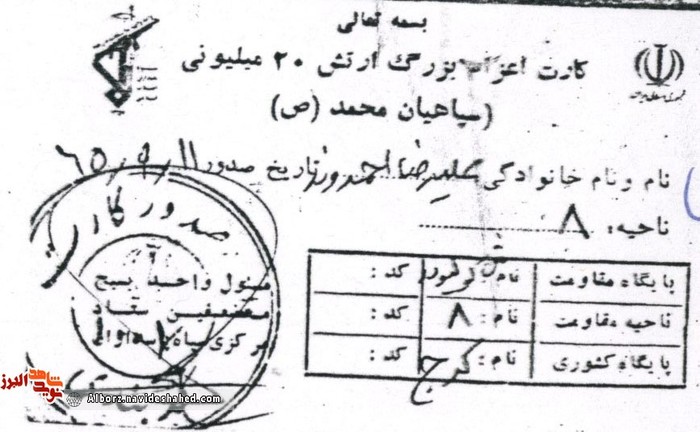 بسمه تعالی
کارت اعزام بزرگ ارتش ۲۰ میلیونی
(سپاهیان محمد (ص)
نام و نام خانوادگی علیرضا احمدوز تاریخ صدور ۶۵/۹/۱۱
ناحیه: ۸
پایگاه مقاومت نام: کد:
ناحیه مقاومت نام: ۸ کد:
پایگاه کشوری نام: کرج کد:
صدور کارت
مسئول واحد بسیج
مستضعفین ستاد
مرکزی سپاه
شاهد نوید البرز
Alborz.navideshahed.com